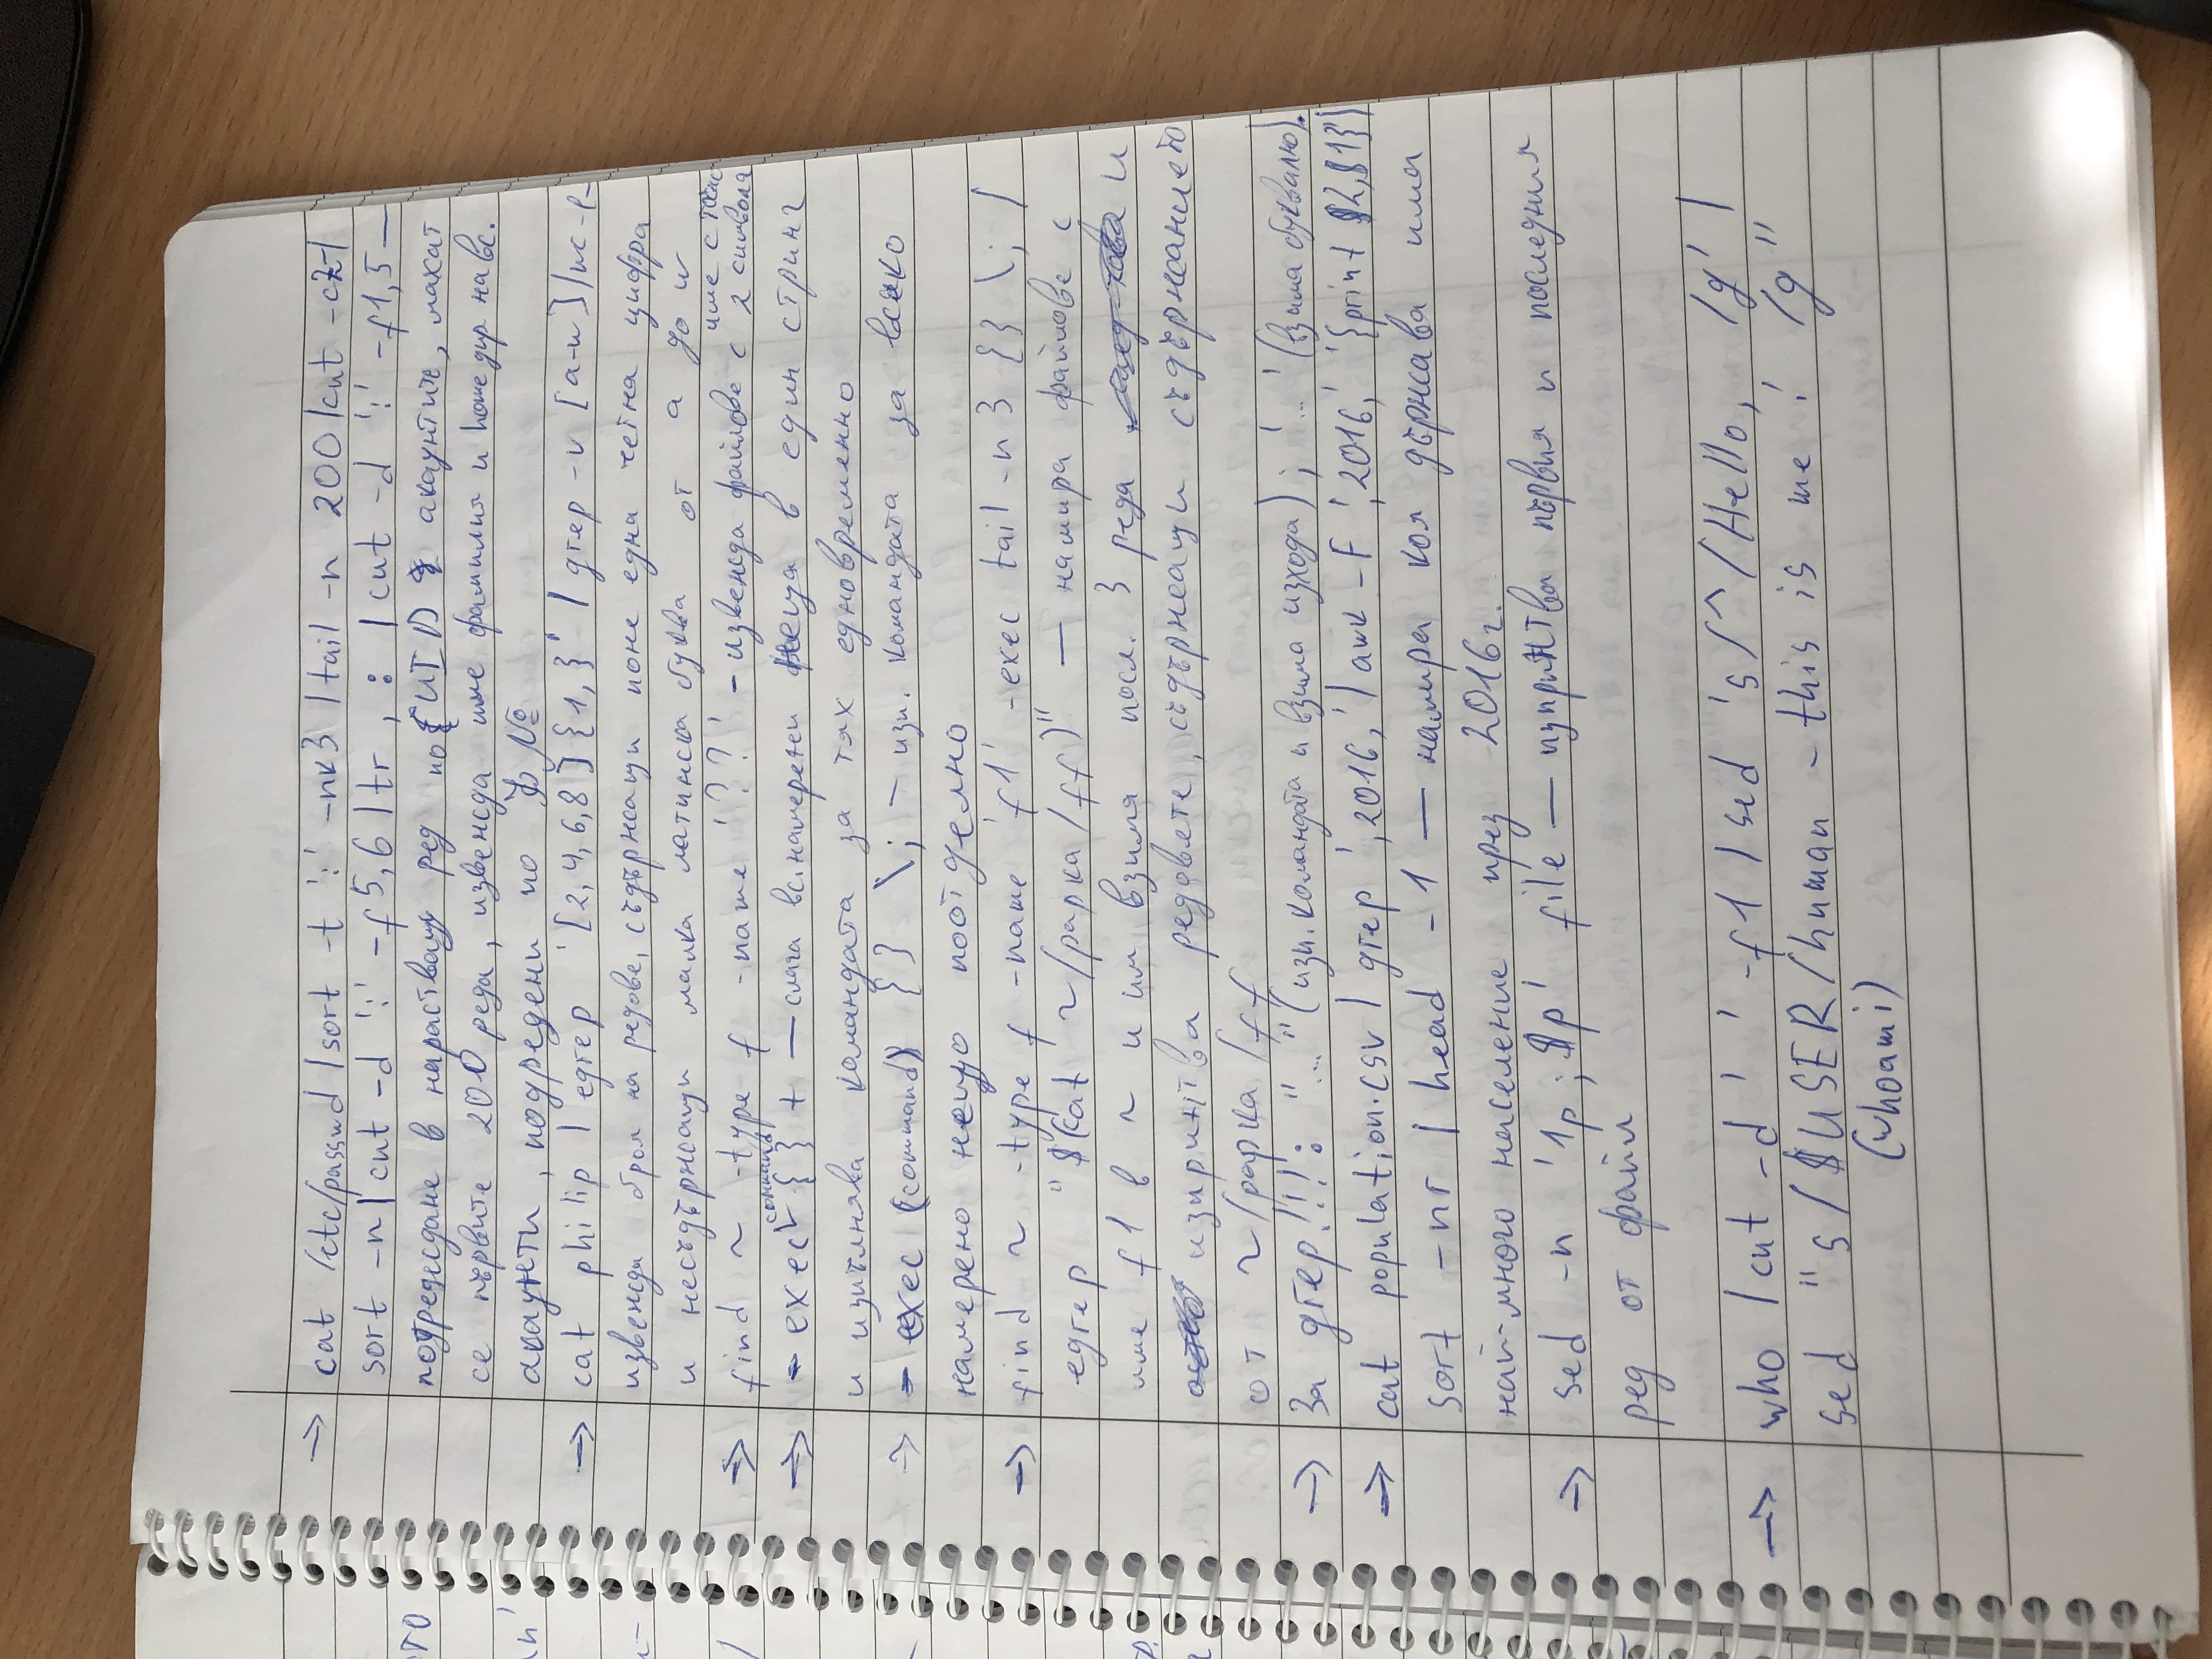 → cat /etc/passwd | sort -t ':' -nk3 | tail -n 200 | cut -c2- |
sort -n | cut -d ':' -f5,6 | tr , : | cut -d ':' -f1,5 —
подреждане в нарастващ ред по UID акаунтите, махат
се първите 200 реда, извежда име фамилия и home дир. на вс.
акаунти, подредени по ф№
→ cat philip | egrep '[2,4,6,8]{1,}' | grep -v [a-w] | wc -l -
извежда броя на редове, съдържащи поне една четна цифра
и несъдържащи малка латинска буква от a до w
→ find ~ -type f -name '??' - извежда файлове с име с точно 2 символа
→ - exec command {} + — слага вс. намерени неща в един стринг
и изпълнява командата за тях едновременно
→ - exec (command) {} \; - изп. командата за всяко
намерено нещо поотделно
→ find ~ -type f -name 'f1' -exec tail -n 3 {} \; |
egrep "$(cat ~/papka/ff)" — намира файлове с
име f1 в ~ и им взима посл. 3 реда и
изпринтва редовете, съдържащи съдържанието
от ~/papka/ff
→ За grep!!!: "..." (изп. командата и взима изхода); '...' (взима буквално).
→ cat population.csv | grep ',2016,' | awk -F ',2016,' '{print $2,$1}' |
sort -nr | head -1 — намира коя държава има
най-много население през 2016г.
→ sed -n '1p;$p' file — изпринтва първия и последния
ред от файл
→ who | cut -d ' ' -f1 | sed 's/^/Hello, /g' |
sed "s/$USER/human - this is me! /g"
(whoami)